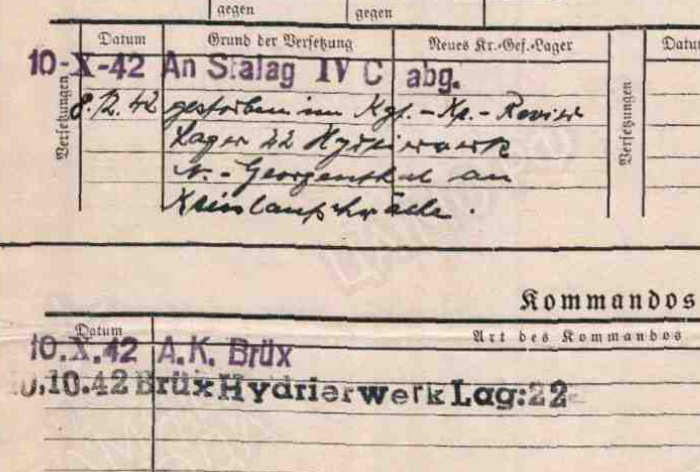 gegen gegen
Datum Grund der Versetzung Neues Kr.-Gef.-Lager Datu
10-X-42 An Stalag IV C abg.
Versetzungen
8.12.42 gestorben im Kgf.-Kp.-Revier
Lager 22 Hydrierwerk
N.-Georgenthal an
Kreislaufschwäche.
Versetzungen
Kommandos
Datum Art des Kommandos
10.X.42 A.K. Brüx
10.42 Brüx Hydrierwerk Lag:22